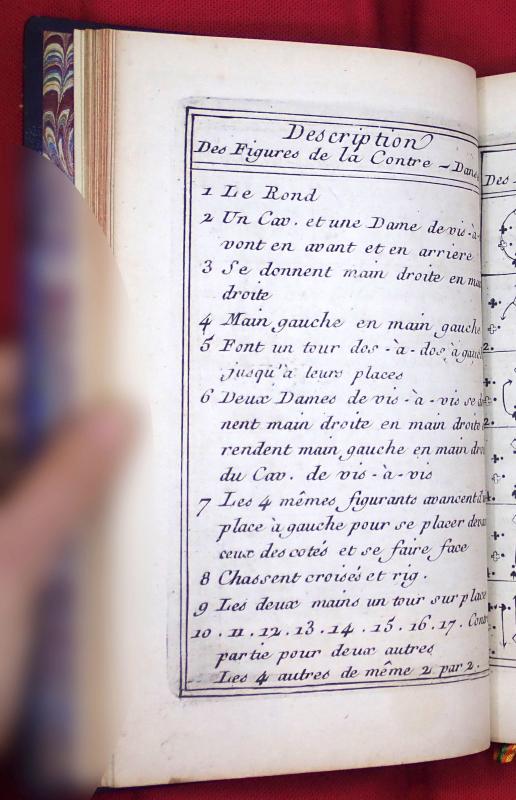 Description
Des Figures de la Contre-Danse
1 Le Rond
2 Un Cav. et une Dame de vis-à-
vont en avant et en arriere
3 Se donnent main droite en
droite
4 Main gauche en main gauche
5 Font un tour dos-à-dos à
jusqu'à leurs places
6 Deux Dames de vis-à-vis se
nent main droite en main droite
rendent main gauche en main
du Cav. de vis-à-vis
7 Les 4 mêmes figurants avancent
place à gauche pour se placer
ceux des cotés et se faire face
8 Chassent croisés et rig.
9 Les deux mains un tour sur place
10. 11. 12. 13. 14. 15. 16. 17.
partie pour deux autres
Les 4 autres de même 2 par 2.
Des
2.
2.